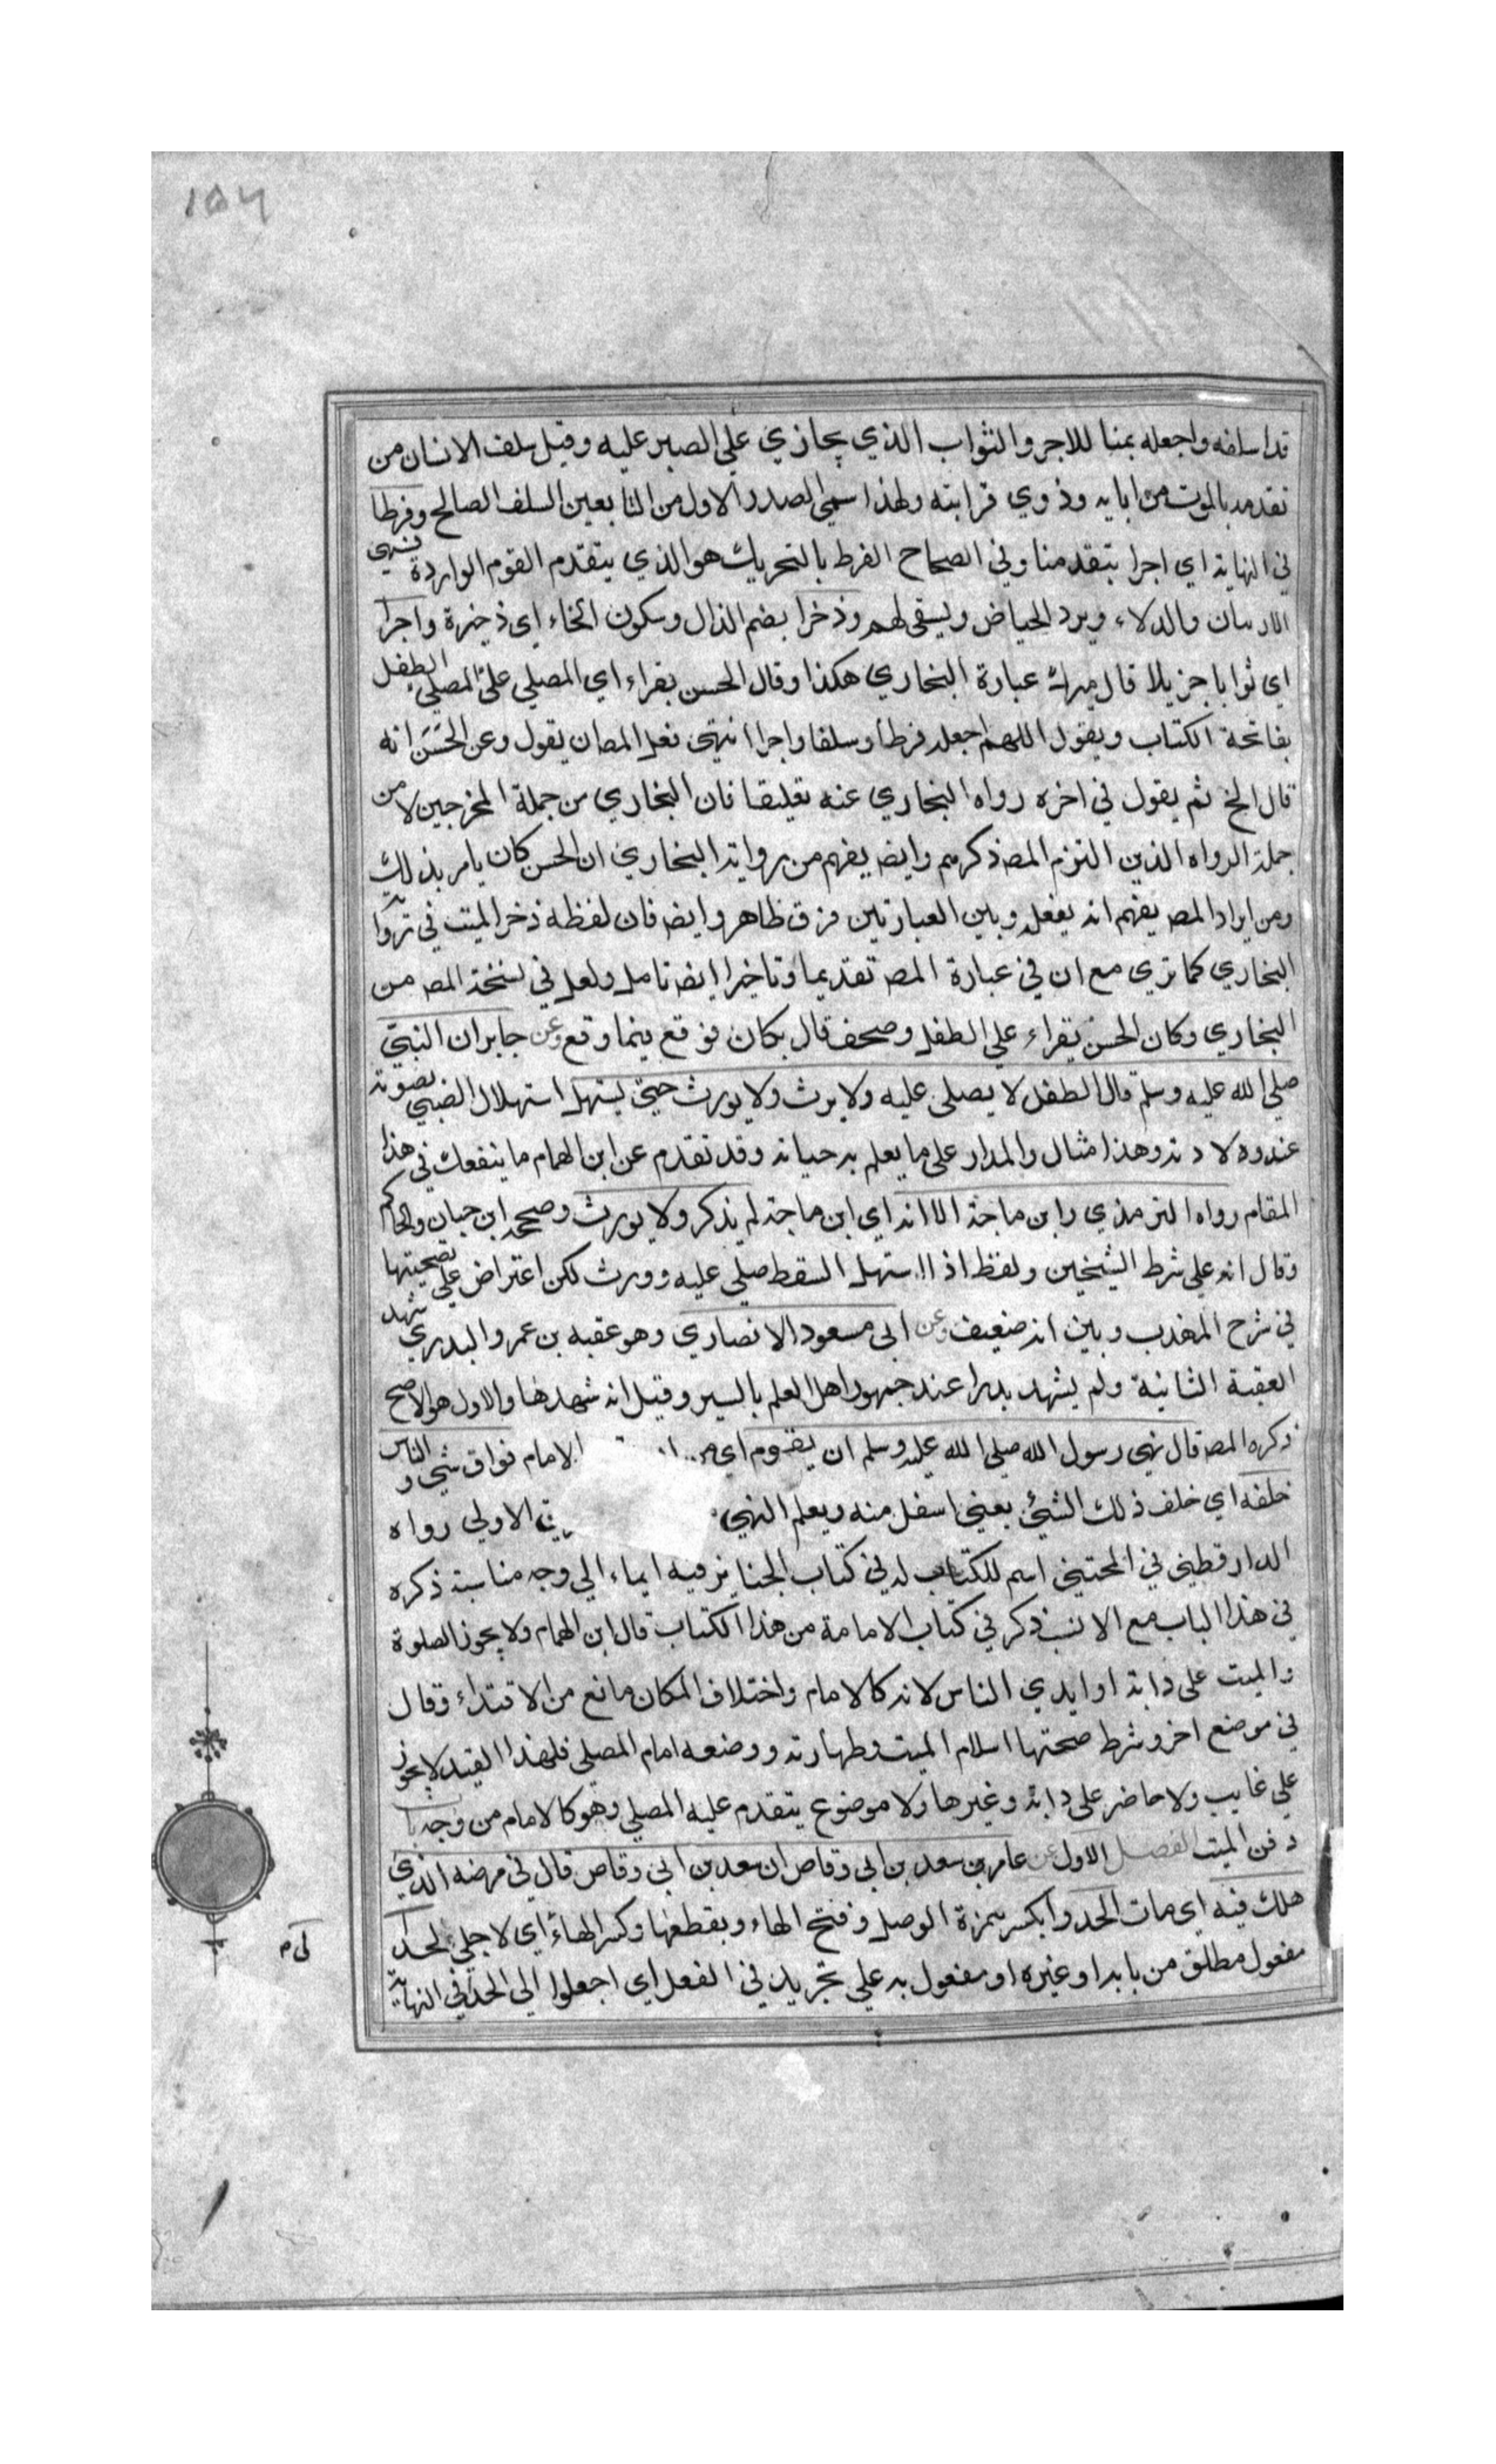 ١٥٦
قد اسلفه واجعله ثمنا للاجر والثواب الذي يجازي علي الصبر عليه وقيل سلف الانسان من
تقدمه بالموت من ابايه وذوي قرابته ولهذا سمي الصدر الاول من التابعين السلف الصالح وفرطا
في النهاية اي اجرا يتقدمنا وفي الصحاح الفرط بالتحريك هو الذي يتقدم القوم الواردة فيهيئ
الارسان والدلاء ويرد الحياض ويسقي لهم وذخرا بضم الذال وسكون الخاء اي ذخيرة واجرا
اي ثوابا جزيلا قال ميرك عبارة البخاري هكذا وقال الحسن يقراء اي المصلي علي المصلي الطفل
بفاتحة الكتاب ويقول اللهم اجعله فرطا وسلفا واجرا انتهي فعل المص ان يقول وعن الحسن انه
قال الخ ثم يقول في اخره رواه البخاري عنه تعليقا فان البخاري من جملة المخرجين لا من
جملة الرواه الذين التزم المص ذكرهم وايض يفهم من رواية البخاري ان الحسن كان يامر بذلك
ومن ايراد المص يفهم انه يفعله وبين العبارتين فرق ظاهر وايض فان لفظه ذخر الميت في
البخاري كما تري مع ان في عبارة المص تقديما وتاخيرا ايض تامل ولعل في نسخة المص من
البخاري وكان الحسن يقراء علي الطفل وصحف قال بكان فوقع فيما وقع وعن جابر ان النبي
صلي الله عليه وسلم قال الطفل لا يصلي عليه ولا يرث ولا يورث حتي يستهل استهلال الصبي تصويته
عند ولادته وهذا مثال والمدار علي ما يعلم به حياته وقد تقدم عن ابن الهمام ما ينفعك في هذا
المقام رواه الترمذي وابن ماجة الا انه اي ابن ماجة لم يذكر ولا يورث وصححه ابن حبان والحاكم
وقال انه علي شرط الشيخين ولفظ اذا استهل السقط صلي عليه وورث لكن اعتراض علي تصحيتها
في شرح المهذب وبين انه ضعيف وعن ابي مسعود الانصاري وهو عقبه بن عمرو البدري شهد
العقبة الثانية ولم يشهد بدرا عند جمهور اهل العلم بالسير وقيل انه شهدها والاول هو الاصح
ذكره المص قال نهي رسول الله صلي الله عليه وسلم ان يقوم اي الامام فواق شي والناس
خلفه اي خلف ذلك الشئ يعني اسفل منه ويعلم النهي الاولي رواه
الدارقطني في المجتبي اسم للكتاب له في كتاب الجنايز فيه ايماء الي وجه مناسبة ذكره
في هذا الباب مع الانسب ذكر في كتاب الامامة من هذا الكتاب قال ابن الهمام ولا يجوز الصلوة
والميت علي دابة او ايدي الناس لانه كالامام واختلاف المكان مانع من الاقتداء وقال
في موضع اخر وشرط صحتها اسلام الميت وطهارته ووضعه امام المصلي فلهذا القيد لا يجوز
علي غايب ولا حاضر علي دابة وغيرها ولا موضوع يتقدم عليه المصلي وهو كالامام من وجه با
دفن الميت الفصل الاول عن عامر بن سعد بن ابي وقاص ان سعد بن ابي وقاص قال في مرضه الذي
هلك فيه اي مات الحدوا بكسر همزة الوصل وفتح الهاء وبقطعها وكسر الهاء اي لاجلي لحد
مفعول مطلق من بابه او غيره او مفعول به علي تجريد في الفعل اي اجعلوا الي الحد في النهاية